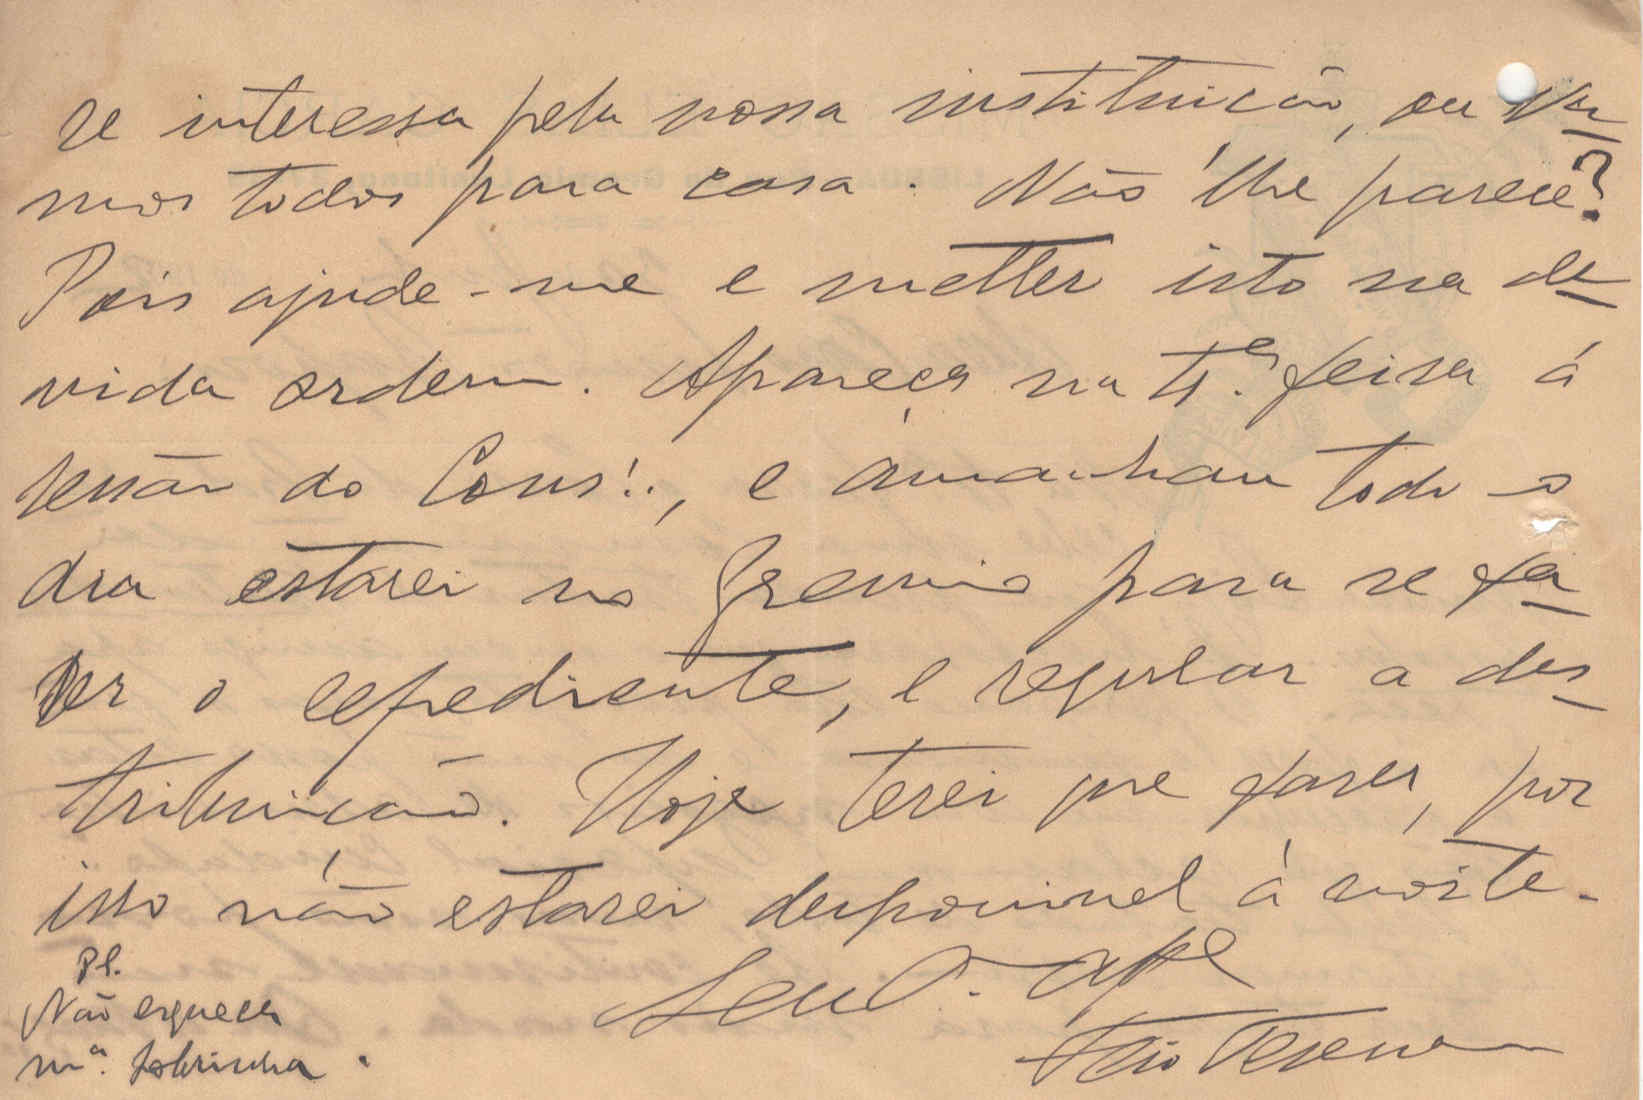 se interessa pela nossa instituição, ou va-
mos todos para casa. Não lhe parece?
Pois ajude-me e metter isto na de-
vida ordem. Apareça na 4.ª feira á
sessão do Cons∴, e ámanhan todo o
dia estarei no Gremio para se fa-
zer o expediente, e regular a des-
tribuição. Hoje terei que fazer, por
isso não estarei desponivel á noite.
Seu
Feio Terenas
Ps.
Não esqueça
m.ª sobrinha.